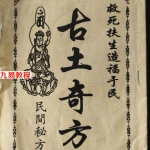 救死扶生造福于民
古土奇方
民間秘方
九易教程